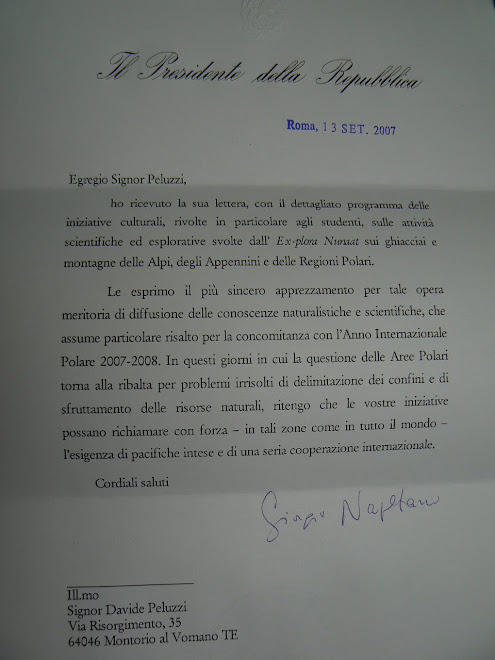 Il Presidente della Repubblica
Roma, 13 SET. 2007
Egregio Signor Peluzzi,
ho ricevuto la sua lettera, con il dettagliato programma delle
iniziative culturali, rivolte in particolare agli studenti, sulle attività
scientifiche ed esplorative svolte dall' Ex-plora Nunaat sui ghiacciai e
montagne delle Alpi, degli Appennini e delle Regioni Polari.
Le esprimo il più sincero apprezzamento per tale opera
meritoria di diffusione delle conoscenze naturalistiche e scientifiche, che
assume particolare risalto per la concomitanza con l'Anno Internazionale
Polare 2007-2008. In questi giorni in cui la questione delle Aree Polari
torna alla ribalta per problemi irrisolti di delimitazione dei confini e di
sfruttamento delle risorse naturali, ritengo che le vostre iniziative
possano richiamare con forza – in tali zone come in tutto il mondo –
l'esigenza di pacifiche intese e di una seria cooperazione internazionale.
Cordiali saluti
Giorgio Napolitano
Ill.mo
Signor Davide Peluzzi
Via Risorgimento, 35
64046 Montorio al Vomano TE